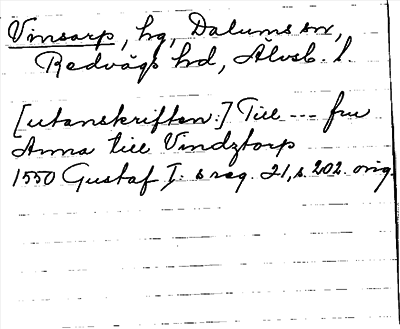 Vinsarp, hg, Dalums sn,
Redvägs hd, Älvsb. l.
[utanskriften:] Till --- fru
Anna till Vindztorp
1550 Gustaf I:s reg. 21, s. 202. orig.